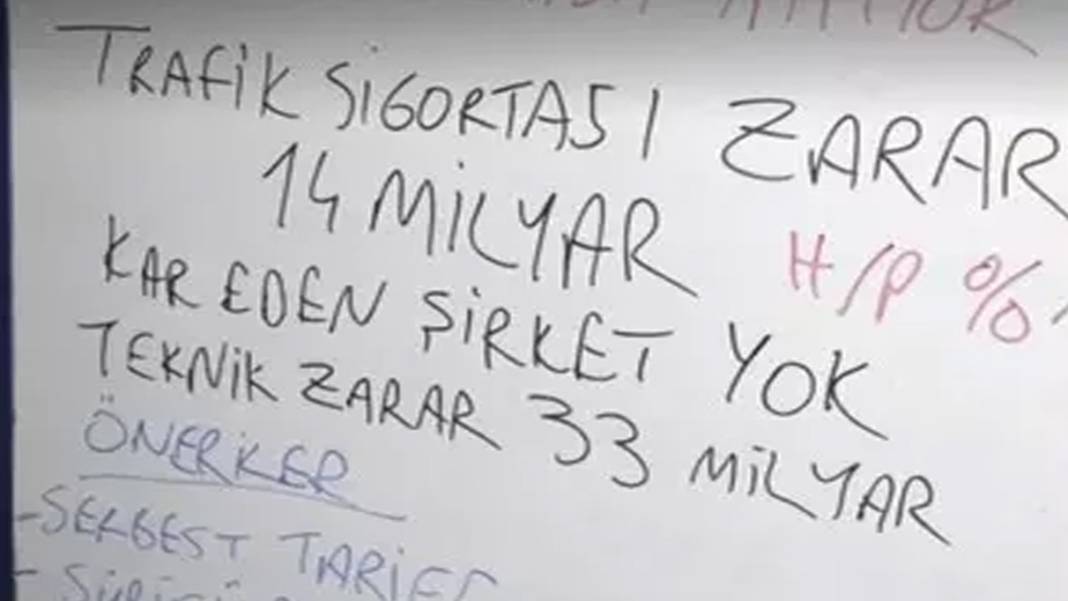 TRAFİK SİGORTASI ZARAR
14 MİLYAR
H/P %
KAR EDEN ŞİRKET YOK
TEKNİK ZARAR 33 MİLYAR
ÖNERİKER
-SERBEST TARİFE